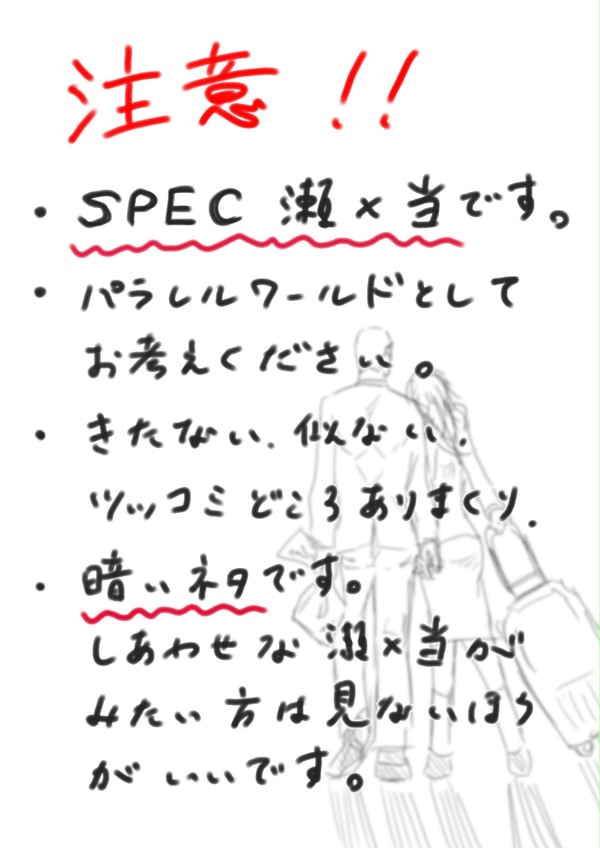 注意!!
・SPEC 瀬×当です。
・パラレルワールドとして
お考えください。
・きたない.似ない.
ツッコミどころありまくり.
・暗いネタです。
しあわせな瀬×当が
みたい方は見ないほう
がいいです。